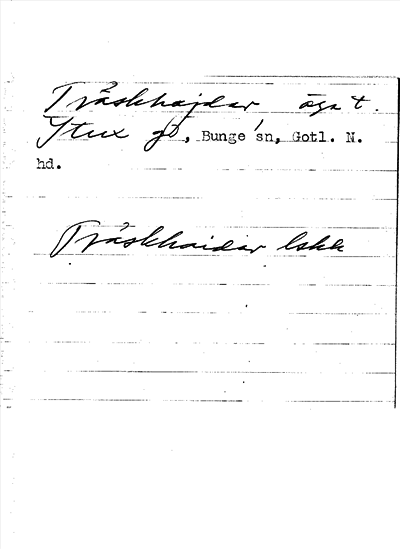 Träskhajdar äga t.
Stux gd, Bunge sn, Gotl. N.
hd.
Träskhaidar lskk